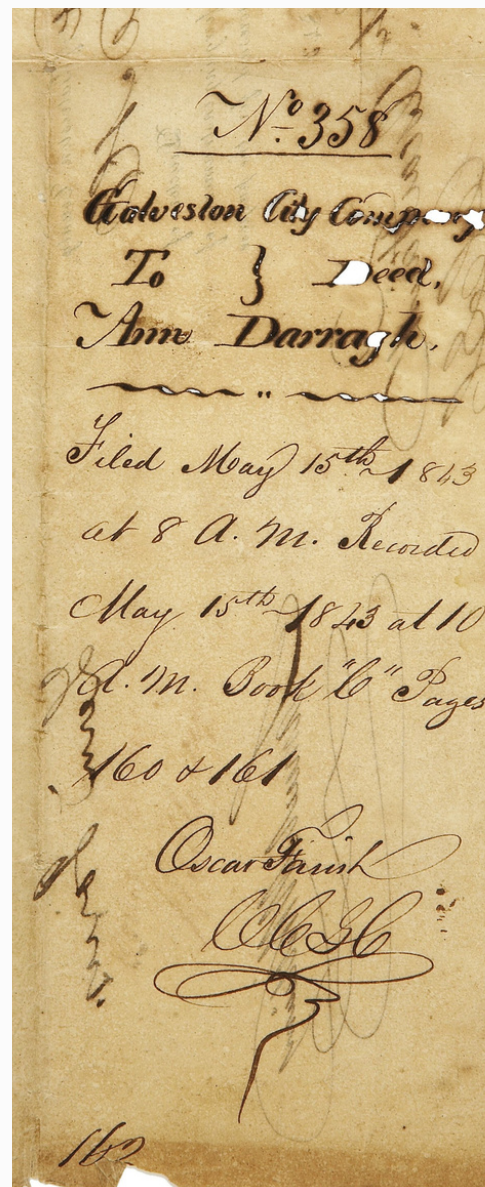 No. 358
Galveston City Company
To } Deed,
Ann Darragh.
Filed May 15th 1843
at 8 A. M. Recorded
May 15th 1843 at 10
A. M. Book "C" Pages
160 & 161
Oscar Farish
CCGC
162